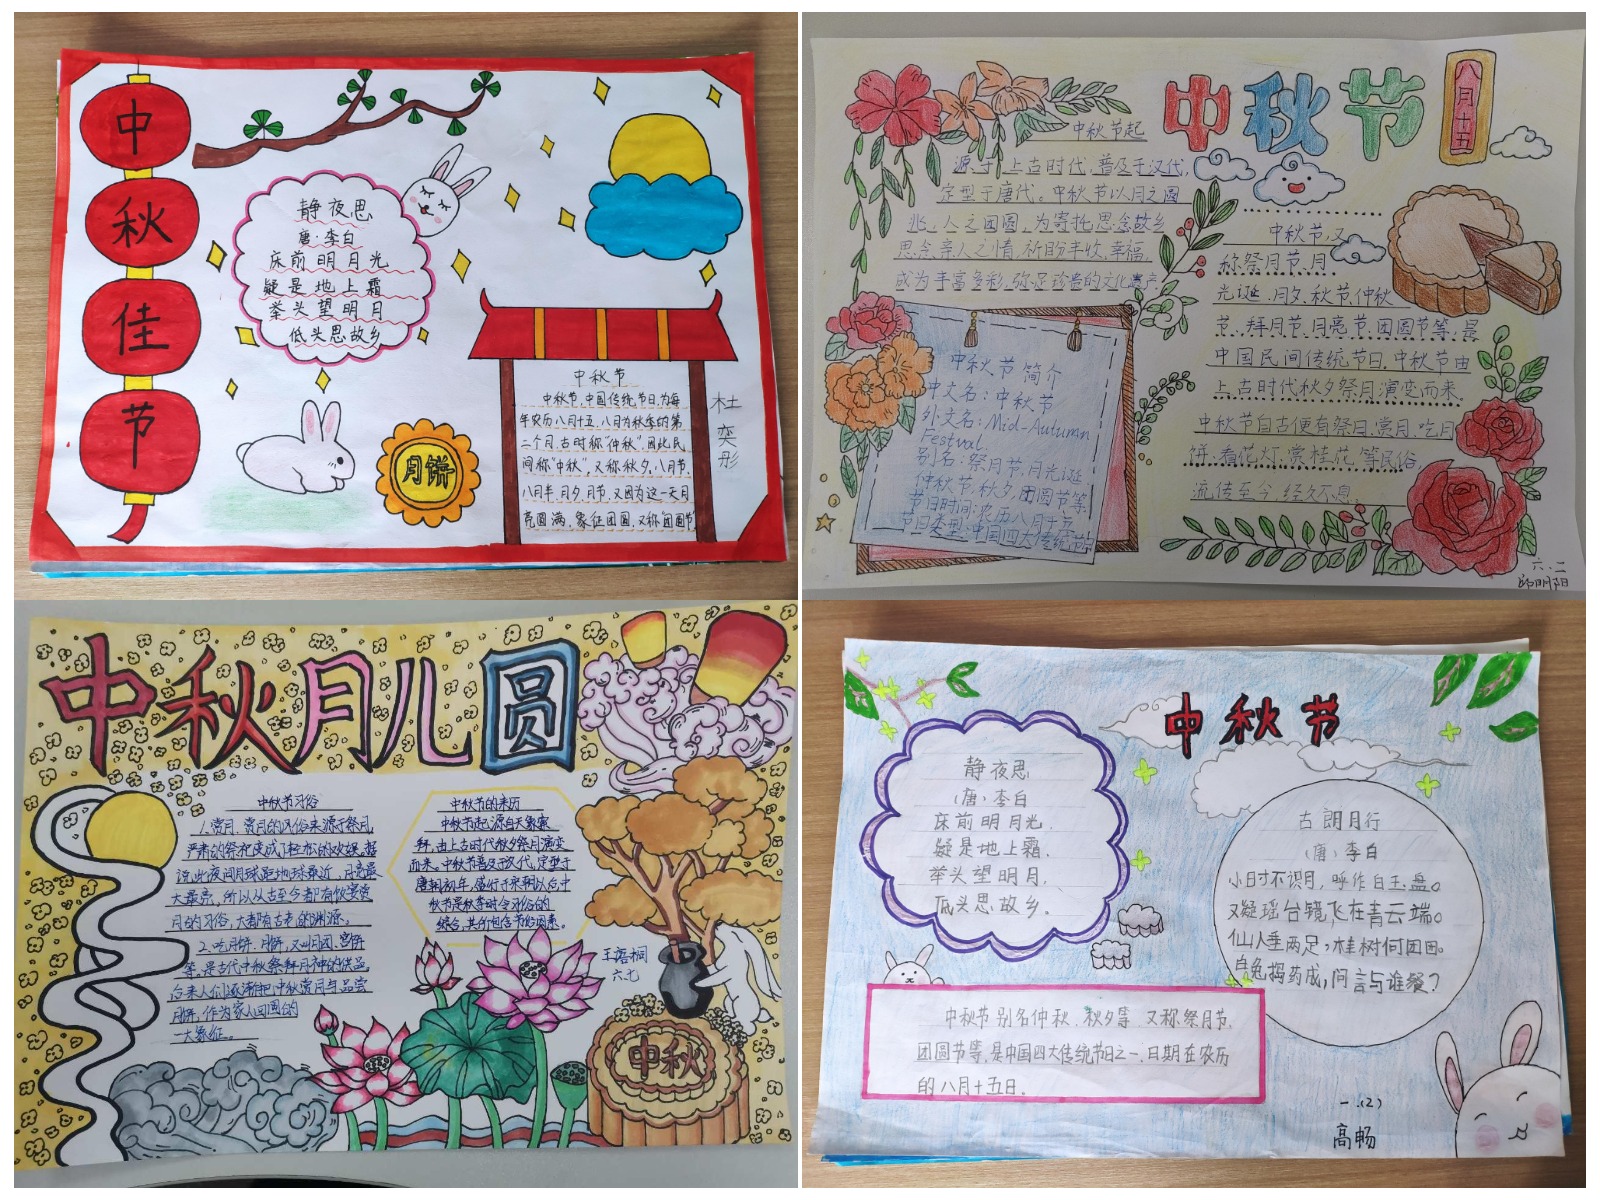 中
秋
佳
节
静夜思
唐·李白
床前明月光
疑是地上霜
举头望明月
低头思故乡
月饼
中秋节
中秋节,中国传统节日,为每
年农历八月十五,八月为秋季的第
二个月,古时称“仲秋”,因此民
间称“中秋”,又称秋夕、八月节、
八月半、月夕、月节,又因为这一天月
亮圆满,象征团圆,又称“团圆节
杜
奕
彤
中秋节
八月十五
中秋节起
源于上古时代,普及于汉代,
定型于唐代。中秋节以月之圆
兆人之团圆,为寄托思念故乡
思念亲人之情,祈盼丰收、幸福,
成为丰富多彩、弥足珍贵的文化遗产
中秋节简介
中文名:中秋节
外文名:Mid-Autumn
Festval
别名:祭月节、月光诞
仲秋节、秋夕、团圆节等
节日时间:农历八月十五
节日类型:中国四大传统节日
中秋节,又
称祭月节、月
光诞、月夕、秋节、仲秋
节、拜月节、月亮节、团圆节等,是
中国民间传统节日。中秋节由
上古时代秋夕祭月演变而来。
中秋节自古便有祭月、赏月、吃月
饼、看花灯、赏桂花等民俗,
流传至今,经久不息。
六.二
明阳
中秋月儿圆
中秋节习俗
1.赏月,赏月的风俗来源于祭月,
严肃的祭祀变成了轻松的欢娱。据
说此夜间月球距地球最近,月亮最
大最亮,所以从古至今都有饮宴赏
月的习俗,大都有古老的渊源、
2.吃月饼,月饼,又叫月团、宫饼
等,是古代中秋祭拜月神的供品,
后来人们逐渐把中秋赏月与品尝
月饼,作为家人团圆的
一大象征。
中秋节的来历
中秋节起源自天象崇
拜,由上古时代秋夕祭月演变
而来。中秋节普及于汉代,定型于
唐朝初年,盛行于宋朝以后,中
秋节是秋季时令习俗的
综合,其所包含节俗因素。
王语桐
六七
中秋
中秋节
静夜思
(唐)李白
床前明月光,
疑是地上霜,
举头望明月,
低头思故乡。
古朗月行
(唐)李白
小时不识月,呼作白玉盘。
又疑瑶台镜,飞在青云端。
仙人垂两足,桂树何团团。
白兔捣药成,问言与谁餐?
中秋节别名仲秋、秋夕等 又称祭月节、
团圆节等,是中国四大传统节日之一,日期在农历
的八月十五日。
一.(2)
高畅